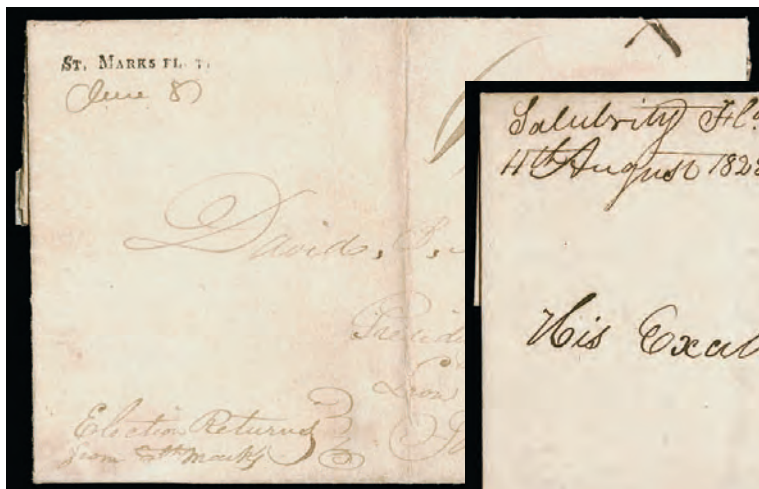 ST. MARKS FL. T.
June 8
David. B.
Election Returns
from St Marks
Salubrity Fl
4th August 182
His Excel